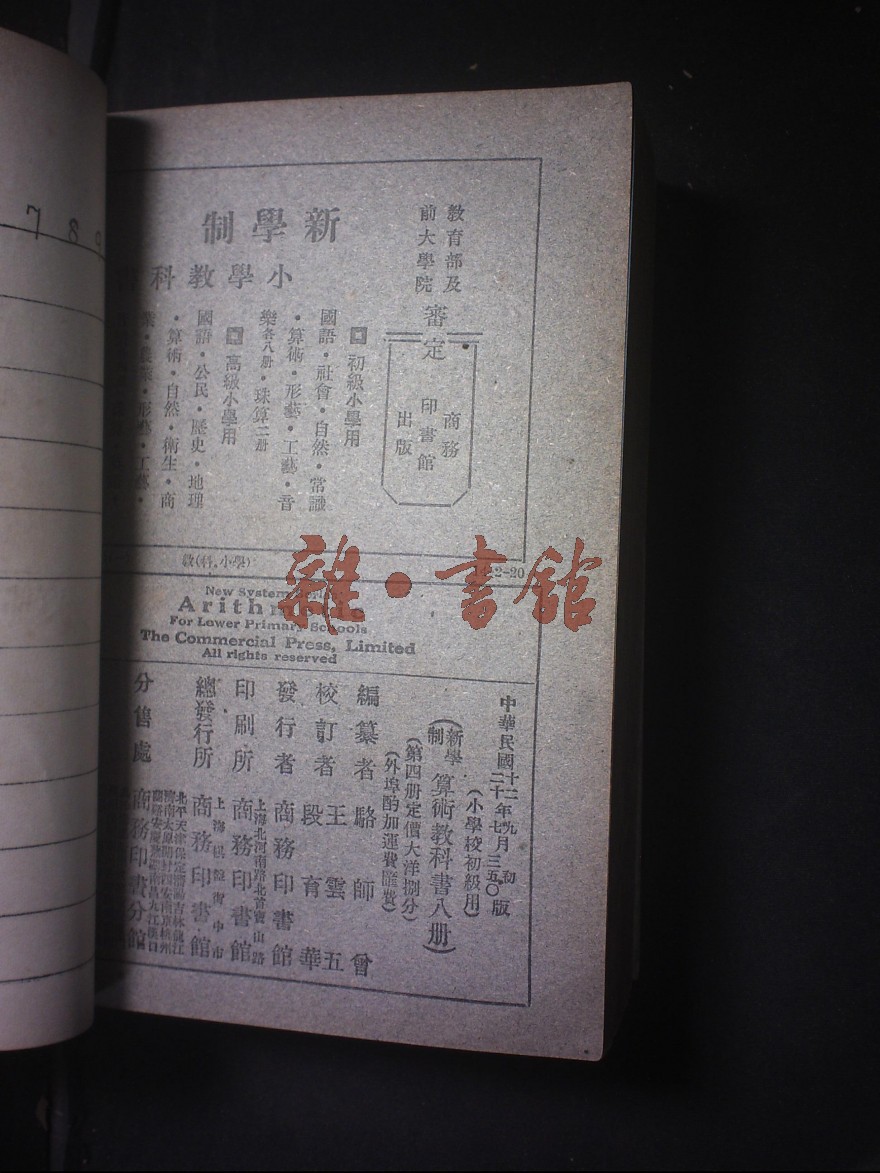 7 8 9
教育部及
前大學院
審定
商務
印書館
出版
新學制
小學教科
初級小學用
國語·社會·自然·常識
·算術·形藝·工藝·音
樂各八册·珠算二册
高級小學用
國語·公民·歷史·地理
·算術·自然·衛生·商
業·農業·形藝·工藝·
教(科,小學)
雜·書館
New System
Arithmetic
For Lower Primary Schools
The Commercial Press, Limited
All rights reserved
中華民國十二年九月初版
二十年七月三五〇版
(小學校初級用)
(新學制算術教科書八册)
(第四册定價大洋捌分)
(外埠酌加運費匯費)
編纂者 駱師曾
校訂者 王雲五
段育華
發行者 商務印書館
上海北河南路北首寶山路
印刷所 商務印書館
上海棋盤街中市
總發行所 商務印書館
分售處 商務印書分館